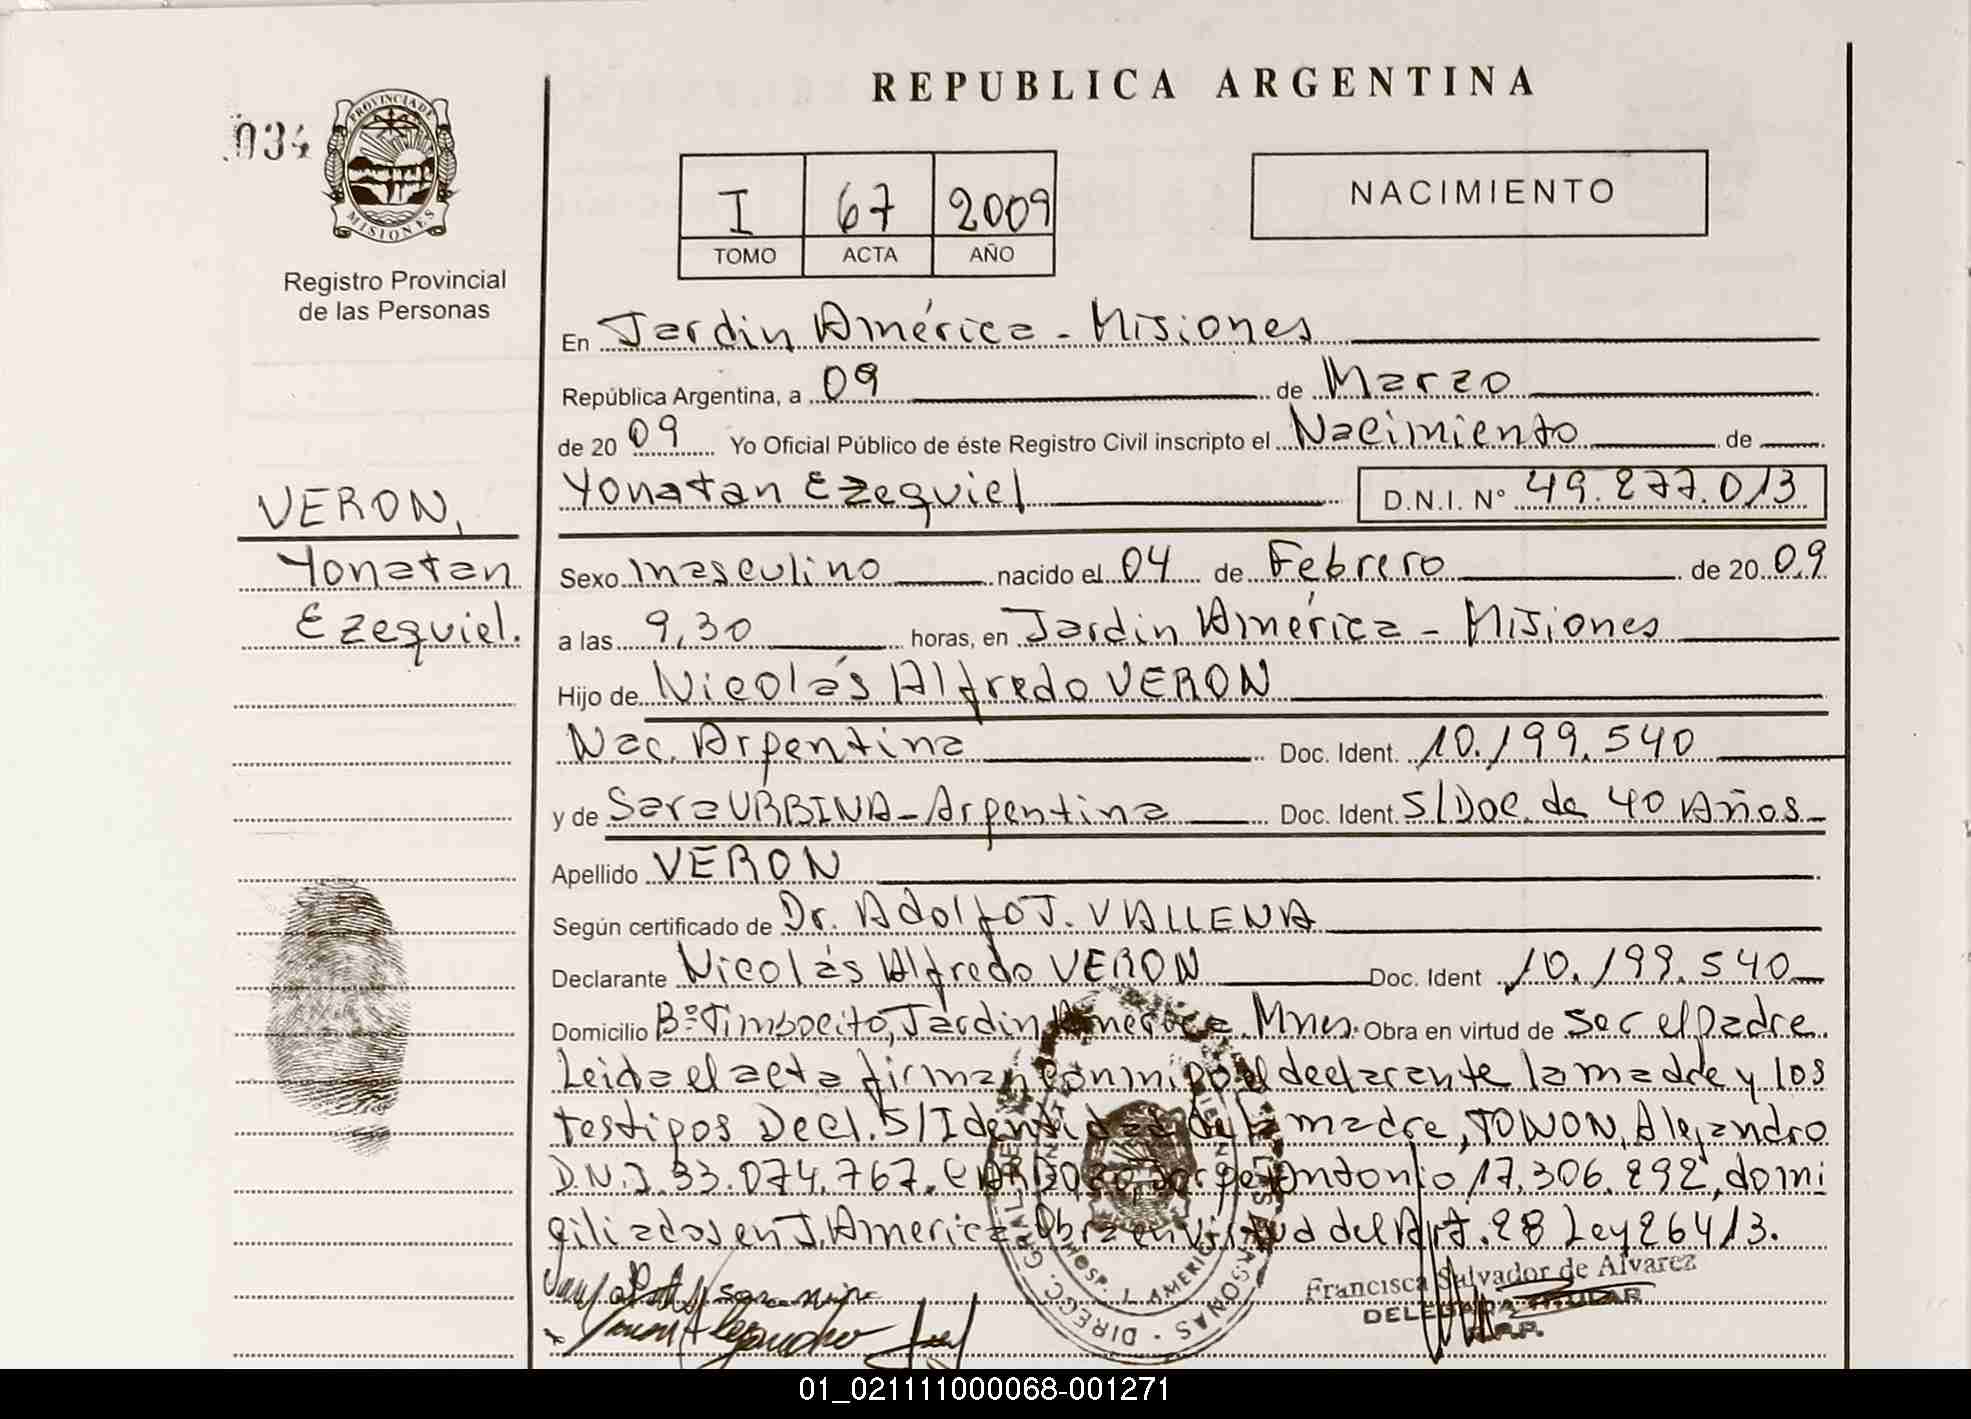 REPUBLICA ARGENTINA
034
PROVINCIA DE
MISIONES
Registro Provincial
de las Personas
I 67 2009
TOMO ACTA AÑO
NACIMIENTO
En Jardin América - Misiones
República Argentina, a 09 de Marzo
de 20 09 Yo Oficial Público de éste Registro Civil inscripto el Nacimiento de
Yonatan Ezequiel D.N.I. N° 49.277.013
VERON,
Yonatan
Ezequiel.
Sexo masculino nacido el 04 de Febrero de 20 09
a las 9,30 horas, en Jardin América - Misiones
Hijo de Nicolás Alfredo VERON
Nac. Argentina Doc. Ident. 10.199.540
y de Sara URBINA - Argentina Doc. Ident. S/Doc. de 40 Años
Apellido VERON
Según certificado de Dr. Adolfo J. VALLENA
Declarante Nicolás Alfredo VERON Doc. Ident 10.199.540
Domicilio B° Timbocito, Jardin America Mnes. Obra en virtud de ser el padre
Leida el acta firman conmigo el declarante la madre y los
testigos Decl. S/Identidad de la madre, TONON, Alejandro
D.N.I. 33.074.767, Jorge Antonio 17.306.292, domi
ciliados en J. America Obra en virtud del Art. 28 Ley 26413.
Francisca Salvador de Alvarez
DELEGADA TITULAR
R.P.P.
HOSP. J. AMERICA
01_021111000068-001271